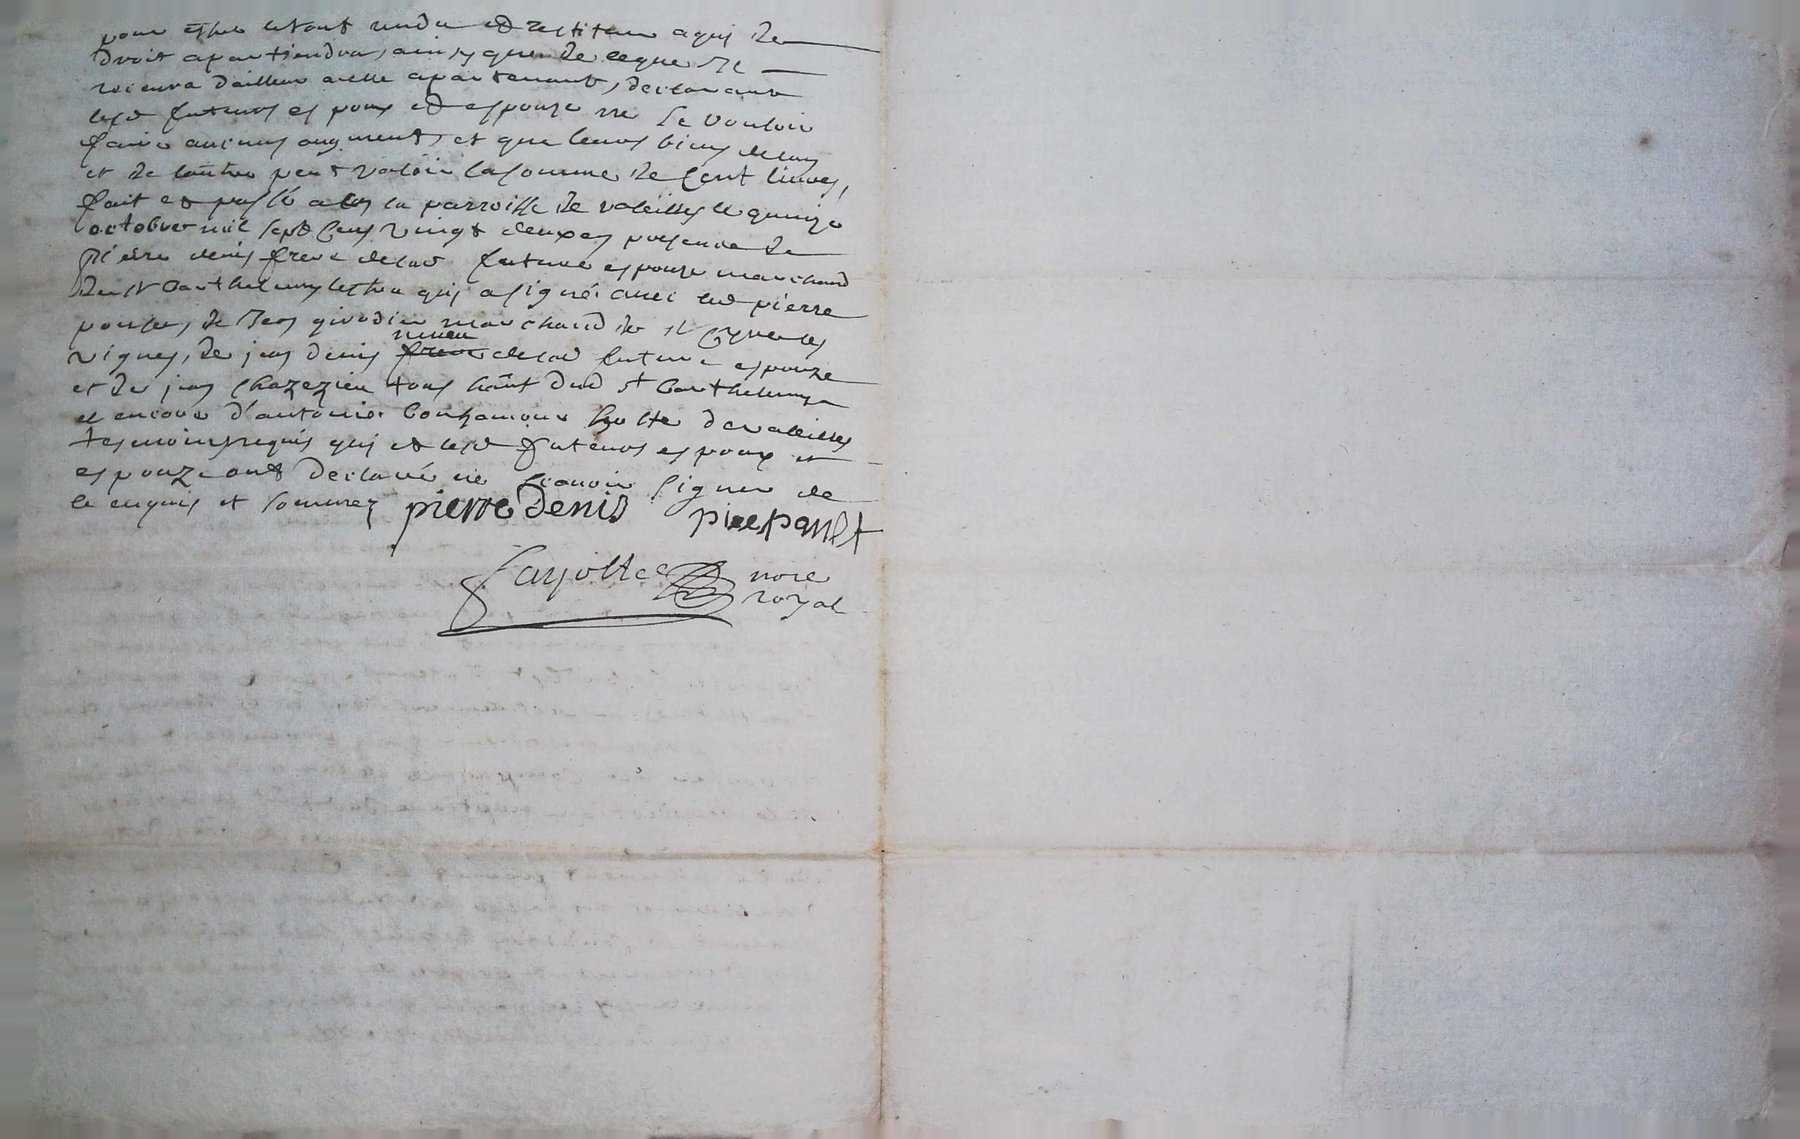 pour estre letout rendu et restitue aqui de
droit apartiendra, ainsy que de ceque
d'ailleur aelle apartenant, declarant
lesd futurs espoux et espouze ne se vouloir
faire aucuns augments et que leurs biens delun
et de lautre peut valoir lasomme de cent livres,
fait et passé la parroisse de valeilles le quinze
octobre mil sept cens vingt deux en presence de
pierre denis frere delad future espouze marchand
de st barthelemy lestra qui a signé avec led pierre
de Jean marchand de st Cyr les
vignes, de jean denis neveu delad future espouze
et de jean chazezieu tous hant dud st barthelemy
et encore d'antoine bonhomme hoste de valeilles
tesmoins requis qui et lesd futurs espoux et
espouze ont declaré ne scavoir signer de
ce enquis et sommez pierre denis
nore
royal